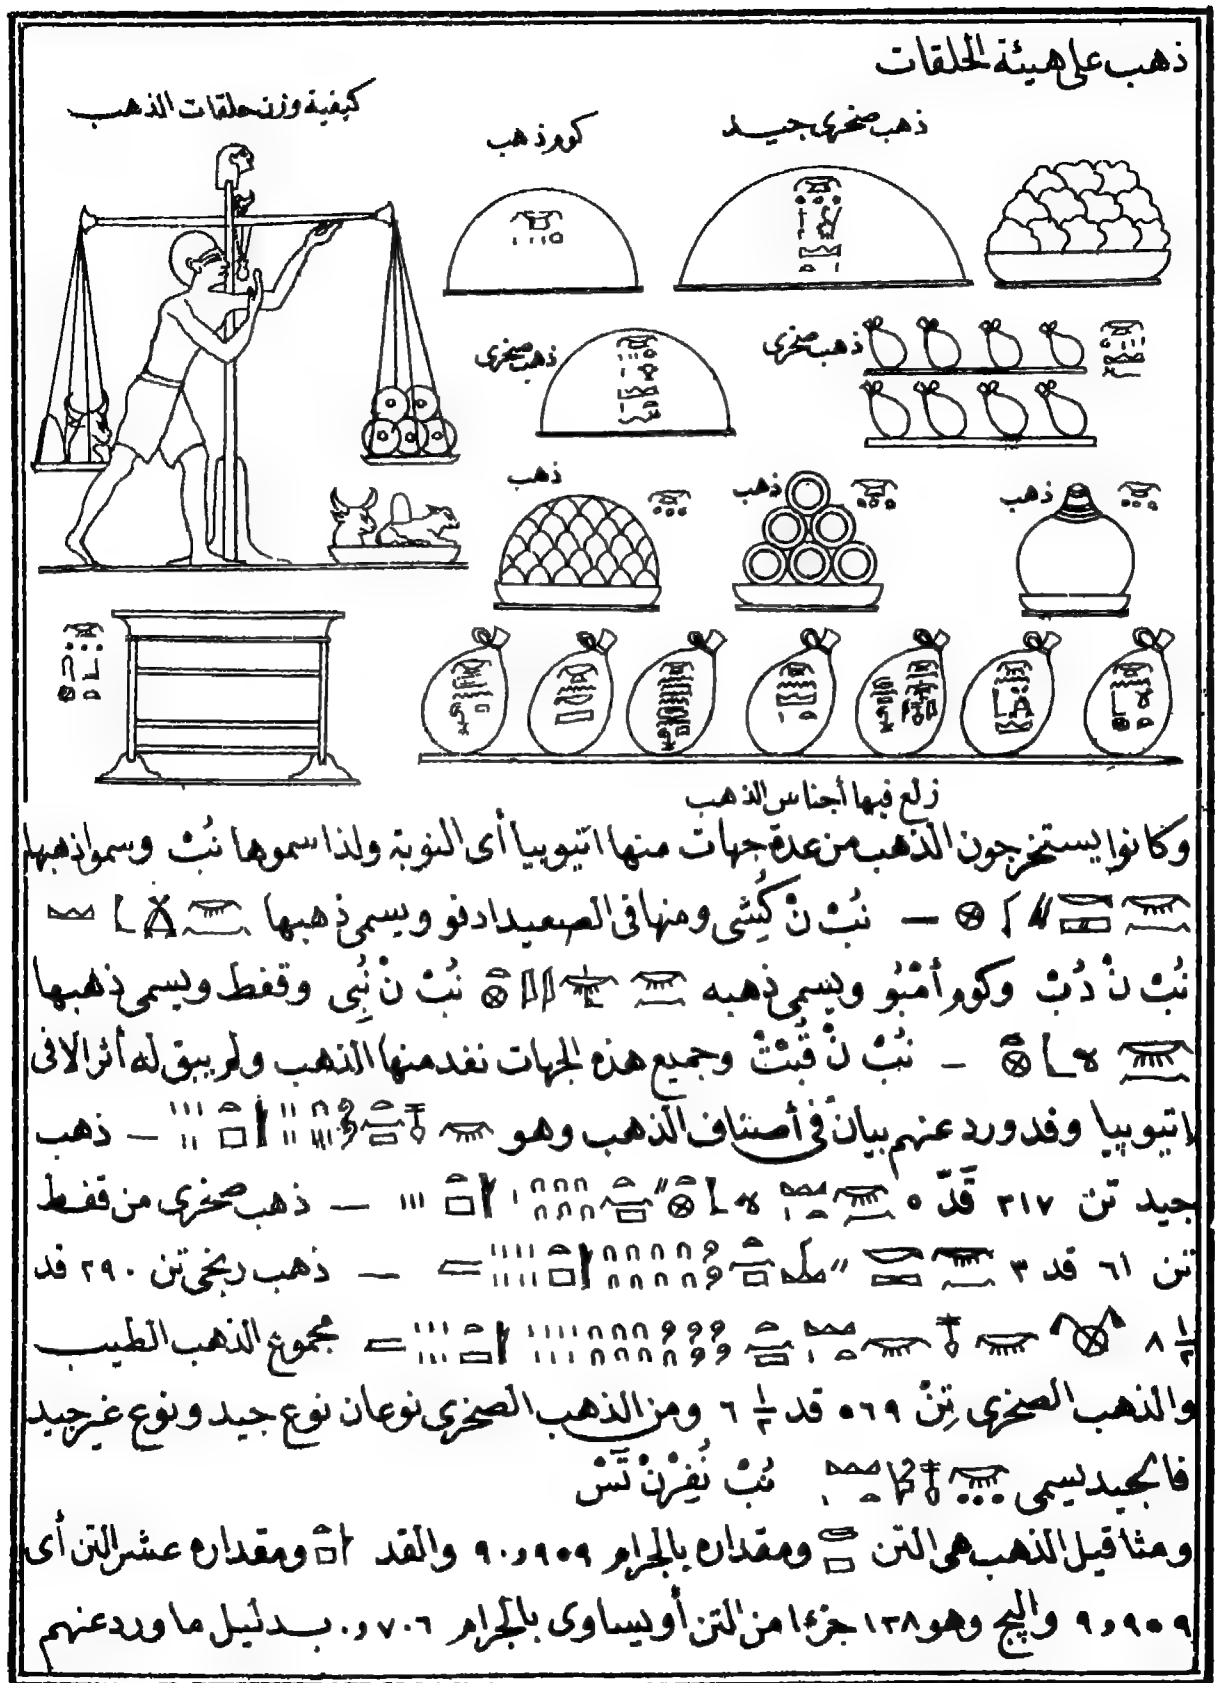 ذهب على هيئة الحلقات
كيفية وزن حلقات الذهب
كوم ذهب
ذهب صخرى جيد
ذهب صخرى
ذهب صخرى
ذهب
ذهب
ذهب
زلع فيها أجناس الذهب
وكانوا يستخرجون الذهب من عدة جهات منها اتيوبيا أى النوبة ولذا سموها نُبْ وسموا ذهبها
— نُبْ نْ كُشِى ومنها فى الصعيد ادفو ويسمى ذهبها
نُبْ نْ دُبْ وكوم أمْبُو ويسمى ذهبه نُبْ نْ نُبِى وقفط ويسمى ذهبها
— نُبْ نْ قُبْتْ وجميع هذه الجهات نفد منها الذهب ولم يبق له أثر الا فى
اتيوبيا وقد ورد عنهم بيان فى أصناف الذهب وهو — ذهب
جيد تن ٣١٧ قَدّ ٥ — ذهب صخرى من قفط
تن ٦١ قد ٣ — ذهب ريخى تن ٢٩٠ قد
٨ ١/٢ مجموع الذهب الطيب
والذهب الصخرى تِنْ ٥٦٩ قد ١/٢ ٦ ومن الذهب الصخرى نوعان نوع جيد ونوع غير جيد
فالجيد يسمى نُبْ نُفِرْنْ تَسْ
ومثاقيل الذهب هى التن ومقداره بالجرام ٩٠٫٩٥٩ والقد ومقداره عشر التن أى
٩٫٩٥٩ والپج وهو ١٣٨ جزءا من التن أو يساوى بالجرام ٠٫٧٠٦ بدليل ما ورد عنهم